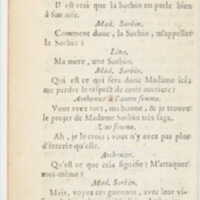 Il est vrai que la Sorbin en parle bien
à son aise.
Mad. Sorbin.
Comment donc, la Sorbin, m'appeller
la Sorbin!
Lina.
Ma mere, une Sorbin.
Mad. Sorbin.
Qui est ce qui sera donc Madame ici,
me perdre le respect de cette maniere!
Arthenice à l'autre femme.
Vous avez tort, ma bonne, & je trouve
le projet de Madame Sorbin très sage.
Une femme.
Ah, je le crois; vous n'y avez pas plus
d'interêt qu'elle.
Arthenice.
Qu'est ce que cela signifie? M'attaquer
moi-même?
Mad. Sorbin.
Mais, voyez ces guenons, avec leur vi-